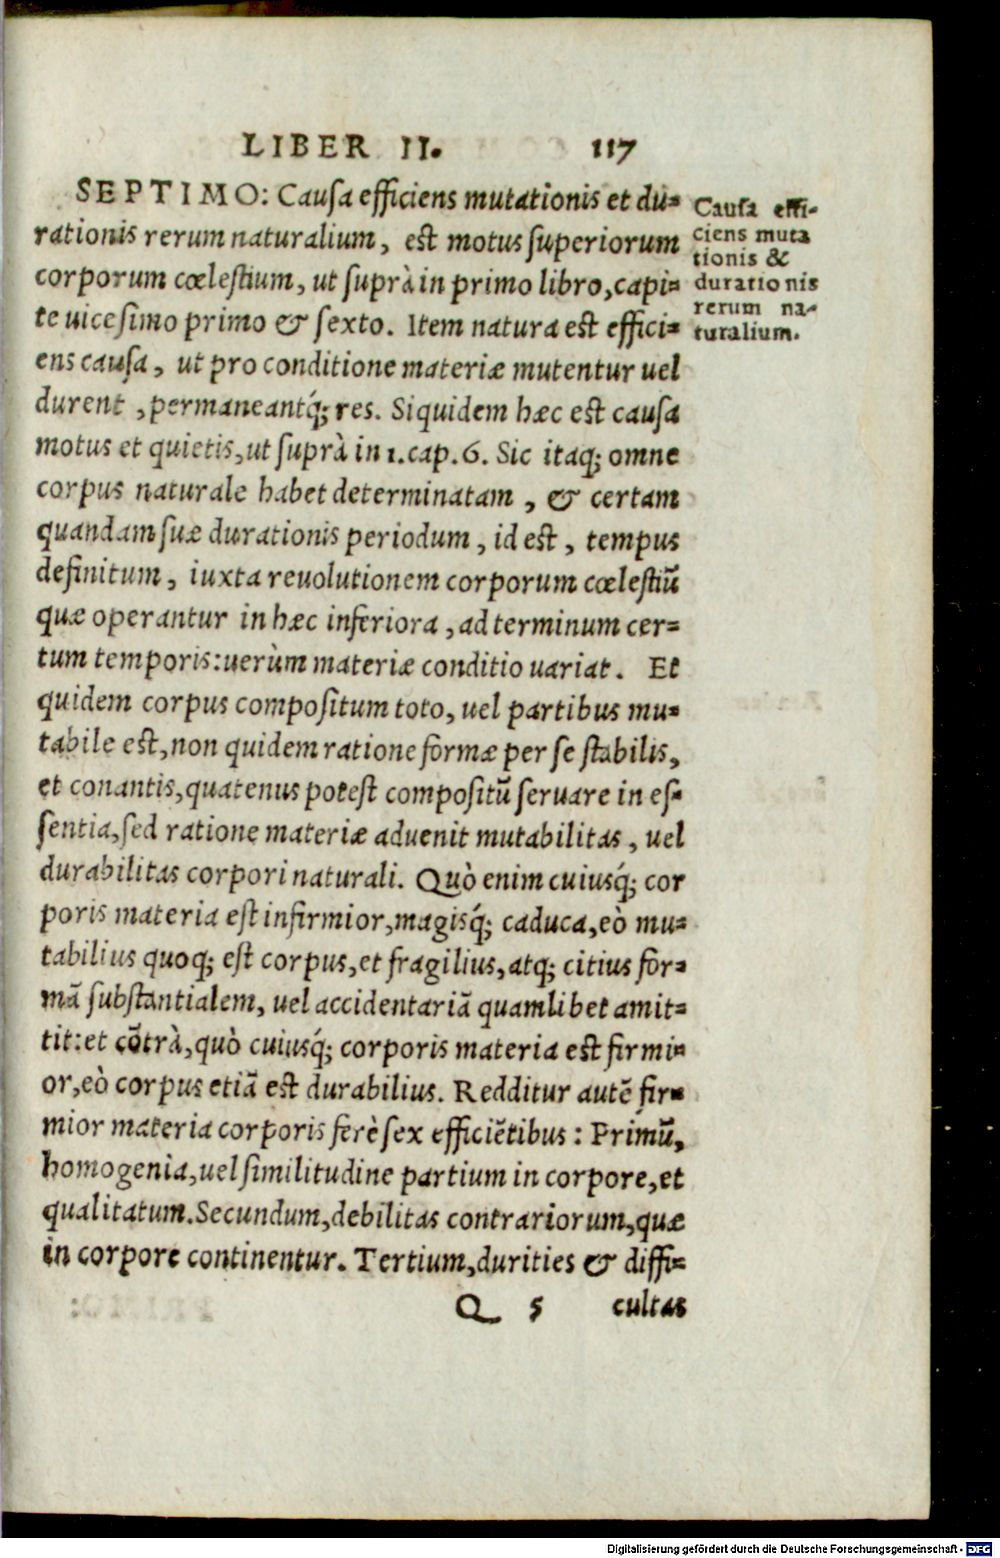 LIBER II. 117
SEPTIMO: Cauſa efficiens mutationis et du-
rationis rerum naturalium, eſt motus ſuperiorum
corporum cœleſtium, ut ſuprà in primo libro, capi-
te uiceſimo primo & ſexto. Item natura eſt effici-
ens cauſa, ut pro conditione materiæ mutentur uel
durent, permaneantq́; res. Siquidem hæc eſt cauſa
motus et quietis, ut ſuprà in 1. cap. 6. Sic itaq; omne
corpus naturale habet determinatam, & certam
quandam ſuæ durationis periodum, id eſt, tempus
definitum, iuxta reuolutionem corporum cœleſtiũ
quæ operantur in hæc inferiora, ad terminum cer-
tum temporis: uerùm materiæ conditio uariat. Et
quidem corpus compoſitum toto, uel partibus mu-
tabile eſt, non quidem ratione formæ per ſe ſtabilis,
et conantis, quatenus poteſt compoſitũ ſeruare in eſ-
ſentia, ſed ratione materiæ aduenit mutabilitas, uel
durabilitas corpori naturali. Quò enim cuiusq́; cor
poris materia eſt infirmior, magisq́; caduca, eò mu-
tabilius quoq; eſt corpus, et fragilius, atq; citius for-
mã ſubſtantialem, uel accidentariã quamlibet amit-
tit: et cõtrà, quò cuiusq́; corporis materia eſt firmi-
or, eò corpus etiã eſt durabilius. Redditur autẽ fir-
mior materia corporis ferè ſex efficiẽtibus: Primũ,
homogenia, uel ſimilitudine partium in corpore, et
qualitatum. Secundum, debilitas contrariorum, quæ
in corpore continentur. Tertium, durities & diffi-
Q 5 cultas
Cauſa effi-
ciens muta
tionis &
durationis
rerum na-
turalium.
Digitalisierung gefördert durch die Deutsche Forschungsgemeinschaft - DFG